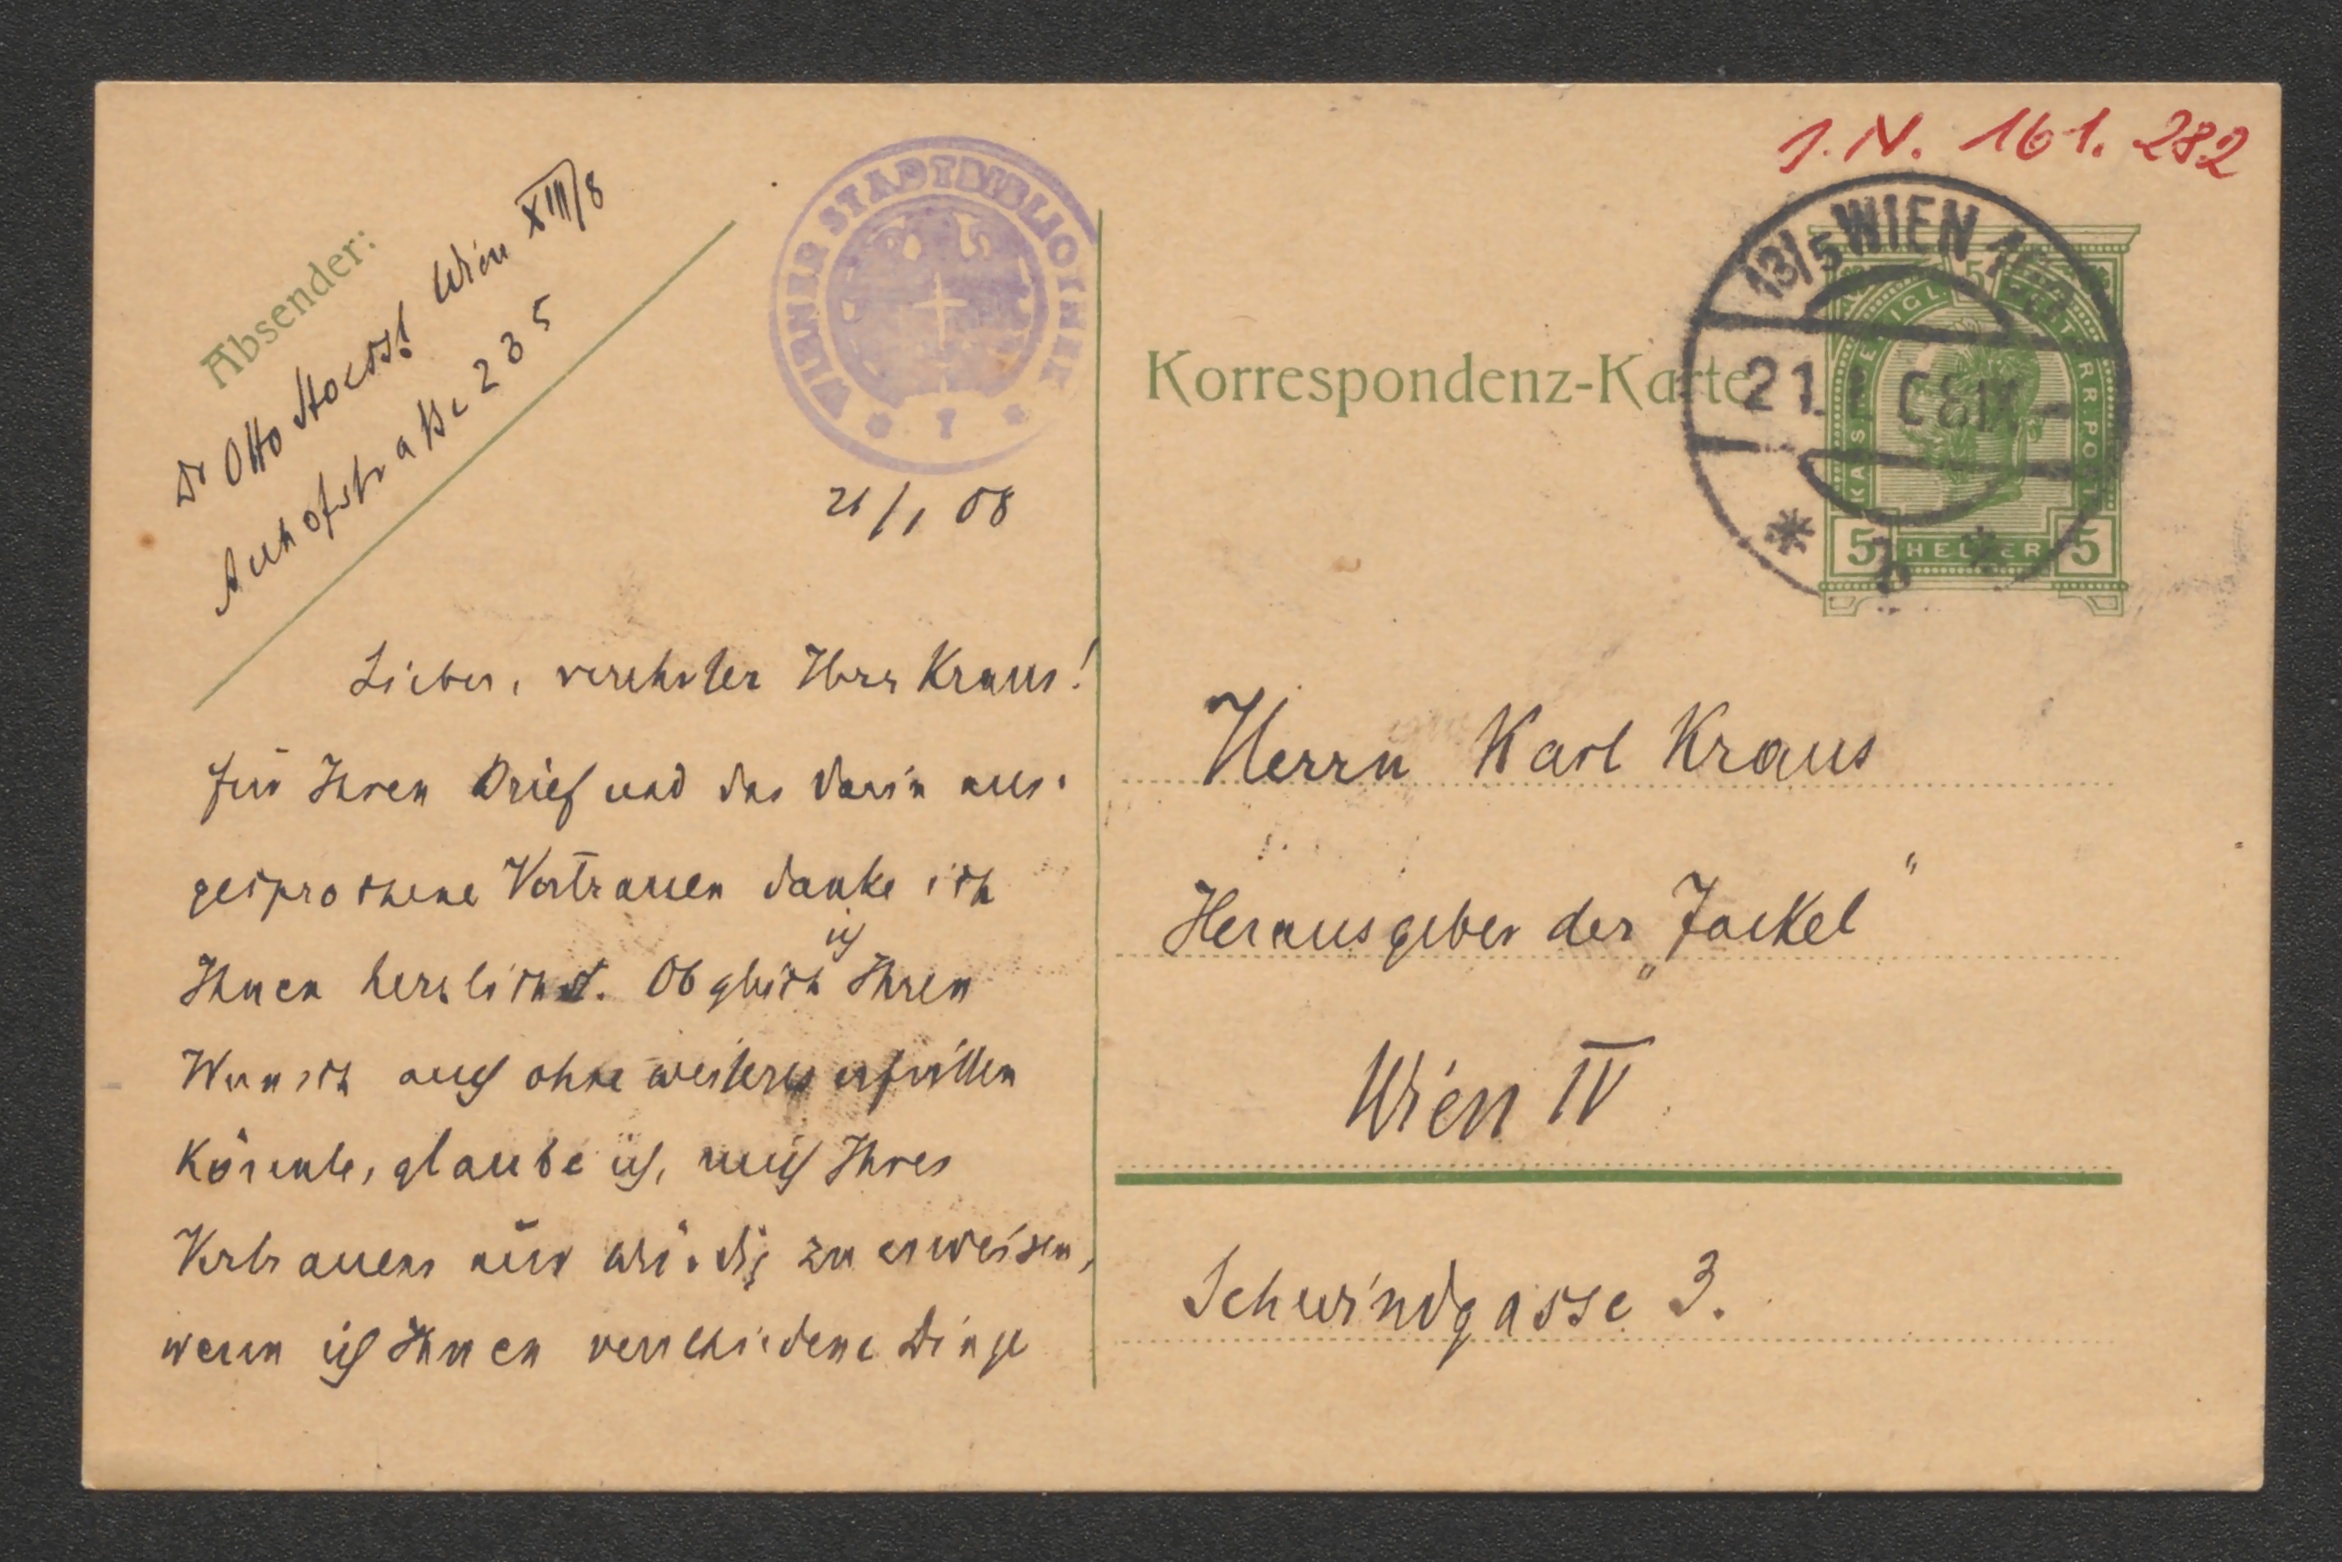 J. N. 161. 282
Absender:
Dr Otto Stoessl Wien XIII/8
Auhofstrasse 235
WIENER STADTBIBLIOTHEK
21/1 08
Lieber, verehrter Herr Kraus!
für Ihren Brief und das darin aus-
gesprochene Vertrauen danke ich
Ihnen herzlichst. Obgleich ich Ihren
Wunsch auch ohne weiteres erfüllen
könnte, glaube ich, mich Ihres
Vertrauens nur würdig zu erweisen,
wenn ich Ihnen verschiedene Dinge
Korrespondenz-Karte
13/5 WIEN
21. 1. 08
5 HELLER 5
Herrn Karl Kraus
Herausgeber der „Fackel“
Wien IV
Schwindgasse 3.